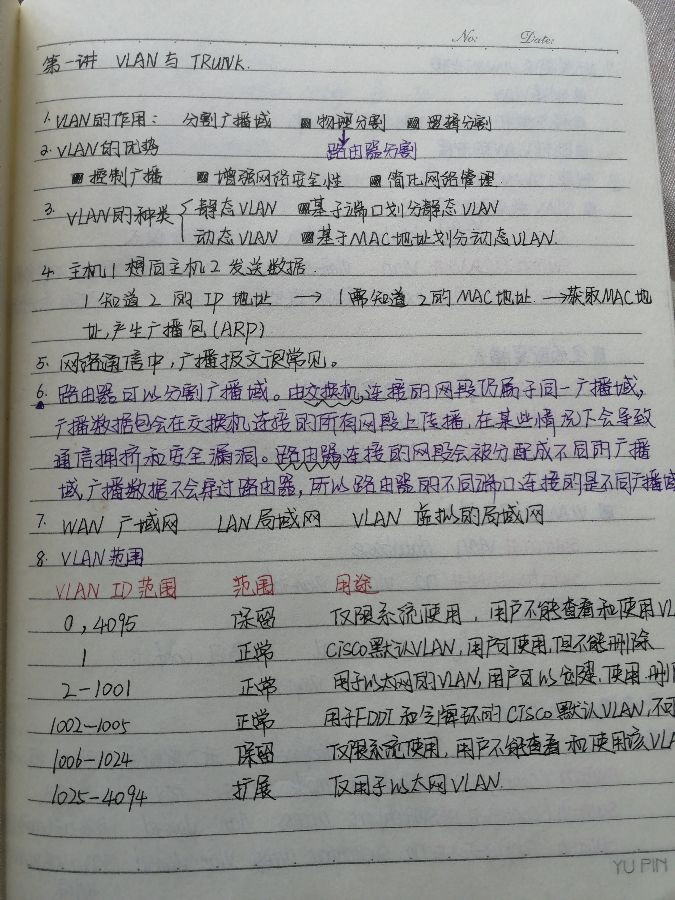 No: Date:
第一讲 VLAN与 TRUNK.
1. VLAN的作用： 分割广播域 物理分割 逻辑分割
2. VLAN的优势 路由器分割
控制广播 增强网络安全性 简化网络管理
3. VLAN的种类 静态VLAN 基于端口划分静态VLAN
动态VLAN 基于MAC地址划分动态VLAN.
4. 主机1想向主机2发送数据.
1知道2的IP地址 → 1需知道2的MAC地址. →获取MAC地
址,产生广播包(ARP)
5. 网络通信中,广播报文很常见。
6. 路由器可以分割广播域。由交换机连接的网段仍属于同一广播域,
广播数据包会在交换机连接的所有网段上传播,在某些情况下会导致
通信拥挤和安全漏洞。路由器连接的网段会被分配成不同的广播
域,广播数据不会穿过路由器,所以路由器的不同端口连接的是不同广播域
7. WAN 广域网 LAN局域网 VLAN 虚拟的局域网
8. VLAN范围
VLAN ID范围 范围 用途
0, 4095 保留 仅限系统使用, 用户不能查看和使用VL
1 正常 CISCO默认VLAN,用户可使用,但不能删除
2-1001 正常 用于以太网的VLAN,用户可以创建、使用、删
1002-1005 正常 用于FDDI和令牌环的CISCO默认VLAN,不可
1006-1024 保留 仅限系统使用,用户不能查看和使用该VLA
1025-4094 扩展 仅用于以太网VLAN.
YU PIN